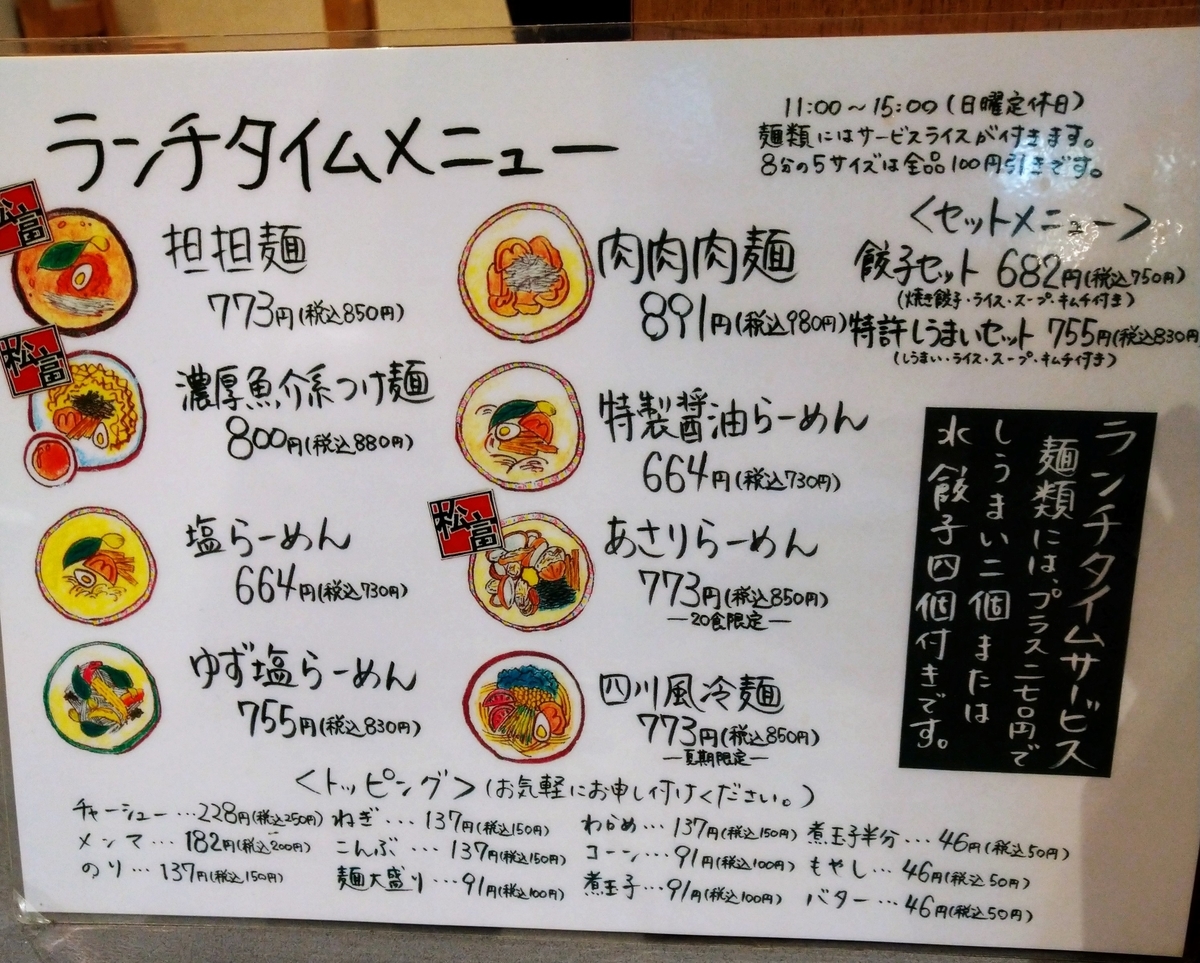 ランチタイムメニュー
11:00〜15:00(日曜定休日)
麺類にはサービスライスが付きます。
8分の5サイズは全品100円引きです。
松富
担担麺
773円(税込850円)
松富
濃厚魚介系つけ麺
800円(税込880円)
塩らーめん
664円(税込730円)
ゆず塩らーめん
755円(税込830円)
肉肉肉麺
891円(税込980円)
特製醤油らーめん
664円(税込730円)
松富
あさりらーめん
773円(税込850円)
—20食限定—
四川風冷麺
773円(税込850円)
—夏期限定—
<セットメニュー>
餃子セット 682円(税込750円)
(焼き餃子・ライス・スープ・キムチ付き)
特許しうまいセット 755円(税込830円
(しうまい・ライス・スープ・キムチ付き)
ランチタイムサービス
麺類には、プラス二七〇円で
しうまい二個または
水餃子四個付きです。
<トッピング>(お気軽にお申し付けください。)
チャーシュー…228円(税込250円)
メンマ…182円(税込200円)
のり…137円(税込150円)
ねぎ…137円(税込150円)
こんぶ…137円(税込150円)
麺大盛り…91円(税込100円)
わかめ…137円(税込150円)
コーン…91円(税込100円)
煮玉子…91円(税込100円)
煮玉子半分…46円(税込50円)
もやし…46円(税込50円)
バター…46円(税込50円)